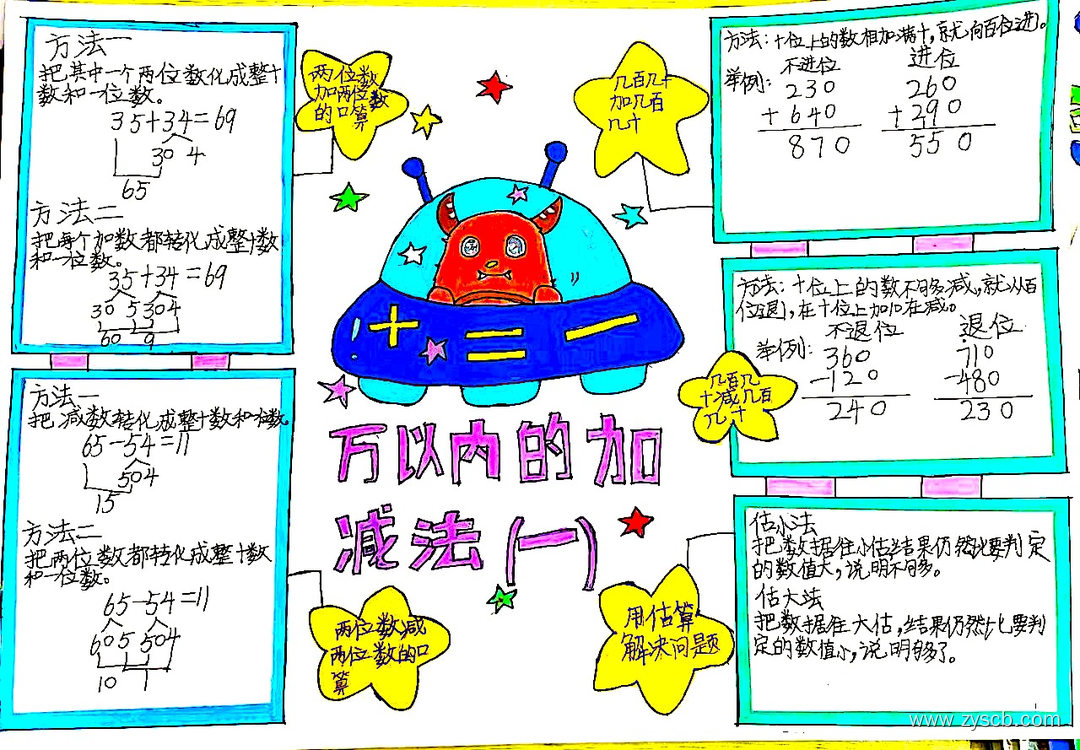 方法一
把其中一个两位数化成整十
数和一位数。
35+34=69
30 4
65
方法二
把每个加数都转化成整十数
和一位数。
35+34=69
30 5 30 4
60 9
两位数
加两位数
的口算
几百几十
加几百
几十
方法:十位上的数相加满十,就向百位进。
举例: 不进位 进位
230 260
+640 +290
870 550
方法:十位上的数不够减,就从百
位退,在十位上加10在减。
不退位 退位
举例: 360 710
-120 -480
240 230
几百几
十减几百
几十
+ = -
万以内的加
减法(一)
方法一
把减数转化成整十数和一位数
65-54=11
50 4
15
方法二
把两位数都转化成整十数
和一位数。
65-54=11
60 5 50 4
10 1
两位数减
两位数的口
算
用估算
解决问题
估小法
把数据往小估结果仍然比要判定
的数值大,说明不够。
估大法
把数据往大估,结果仍然比要判
定的数值小,说明够了。
www.zyscb.com